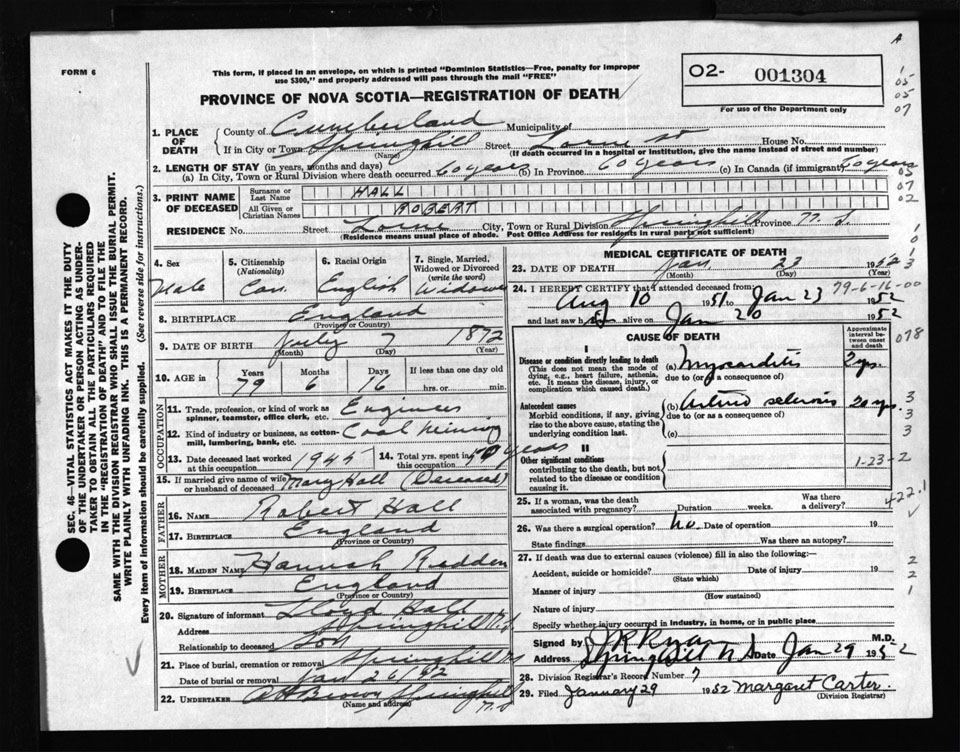 FORM 6
This form, if placed in an envelope, on which is printed "Dominion Statistics—Free, penalty for improper
use $300," and properly addressed will pass through the mail "FREE"
PROVINCE OF NOVA SCOTIA—REGISTRATION OF DEATH
02- 001304
For use of the Department only
A
1
05
05
07
SEC. 46—VITAL STATISTICS ACT MAKES IT THE DUTY
OF THE UNDERTAKER OR PERSON ACTING AS UNDER-
TAKER TO OBTAIN ALL THE PARTICULARS REQUIRED
IN THE "REGISTRATION OF DEATH" AND TO FILE THE
SAME WITH THE DIVISION REGISTRAR WHO SHALL ISSUE THE BURIAL PERMIT.
WRITE PLAINLY WITH UNFADING INK. THIS IS A PERMANENT RECORD.
Every item of information should be carefully supplied. (See reverse side for instructions.)
1. PLACE OF DEATH
County of Cumberland Municipality of
If in City or Town Springhill Street St House No.
(Name) (If death occurred in a hospital or institution, give the name instead of street and number)
2. LENGTH OF STAY (in years, months and days)
(a) In City, Town or Rural Division where death occurred 60 years (b) In Province 60 years (c) In Canada (if immigrant) 60 years
05
3. PRINT NAME OF DECEASED
Surname or Last Name HALL
07
All Given or Christian Names ROBERT
02
RESIDENCE No. Street City, Town or Rural Division Springhill Province N. S.
(Residence means usual place of abode. Post Office Address for residents in rural parts not sufficient)
4. Sex
Male
5. Citizenship (Nationality)
Can.
6. Racial Origin
English
7. Single, Married, Widowed or Divorced (write the word)
Widower
8. BIRTHPLACE England
(Province or Country)
9. DATE OF BIRTH July 7 1872
(Month) (Day) (Year)
10. AGE in Years Months Days If less than one day old
79 6 16 hrs. or min.
OCCUPATION
11. Trade, profession, or kind of work as spinner, teamster, office clerk, etc. Engineer
12. Kind of industry or business, as cotton-mill, lumbering, bank, etc. Coal Mining
13. Date deceased last worked at this occupation 1945
14. Total yrs. spent in this occupation 50 years
15. If married give name of wife or husband of deceased Mary Hall (Deceased)
FATHER
16. NAME Robert Hall
17. BIRTHPLACE England
(Province or Country)
MOTHER
18. MAIDEN NAME Hannah Rudden
19. BIRTHPLACE England
(Province or Country)
20. Signature of informant Lloyd Hall
Address Springhill N.S.
Relationship to deceased Son
21. Place of burial, cremation or removal Springhill NS
Date of burial or removal Jan 26/52
22. UNDERTAKER Brown Springhill
(Name and address) N.S
MEDICAL CERTIFICATE OF DEATH
23. DATE OF DEATH Jan 23 1952
(Month) (Day) (Year)
24. I HEREBY CERTIFY that I attended deceased from: 79-6-16-00
Aug 10 1951 to Jan 23 1952
and last saw h alive on Jan 20 1952
CAUSE OF DEATH
Approximate interval between onset and death
078
I
Disease or condition directly leading to death
(This does not mean the mode of dying, e.g., heart failure, asthenia, etc. It means the disease, injury, or complication which caused death.)
(a) Myocarditis 2 yrs.
due to (or as a consequence of)
Antecedent causes
Morbid conditions, if any, giving rise to the above cause, stating the underlying condition last.
(b) Arterio sclerosis 20 yrs.
due to (or as a consequence of)
(c)
3
3
3
II
Other significant conditions
contributing to the death, but not related to the disease or condition causing it.
1-23-2
25. If a woman, was the death associated with pregnancy? Duration weeks. Was there a delivery?
422.1
26. Was there surgical operation? No Date of operation 19
State findings Was there an autopsy?
27. If death was due to external causes (violence) fill in also the following:
Accident, suicide or homicide? Date of injury 19
(State which)
Manner of injury
(How sustained)
Nature of injury
Specify whether injury occurred in industry, in home, or in public place
2
2
1
Signed by J R Ryan M.D.
Address Springhill N S Date Jan 29 1952
28. Division Registrar's Record Number 7
29. Filed January 29 1952 Margaret Carter
(Division Registrar)